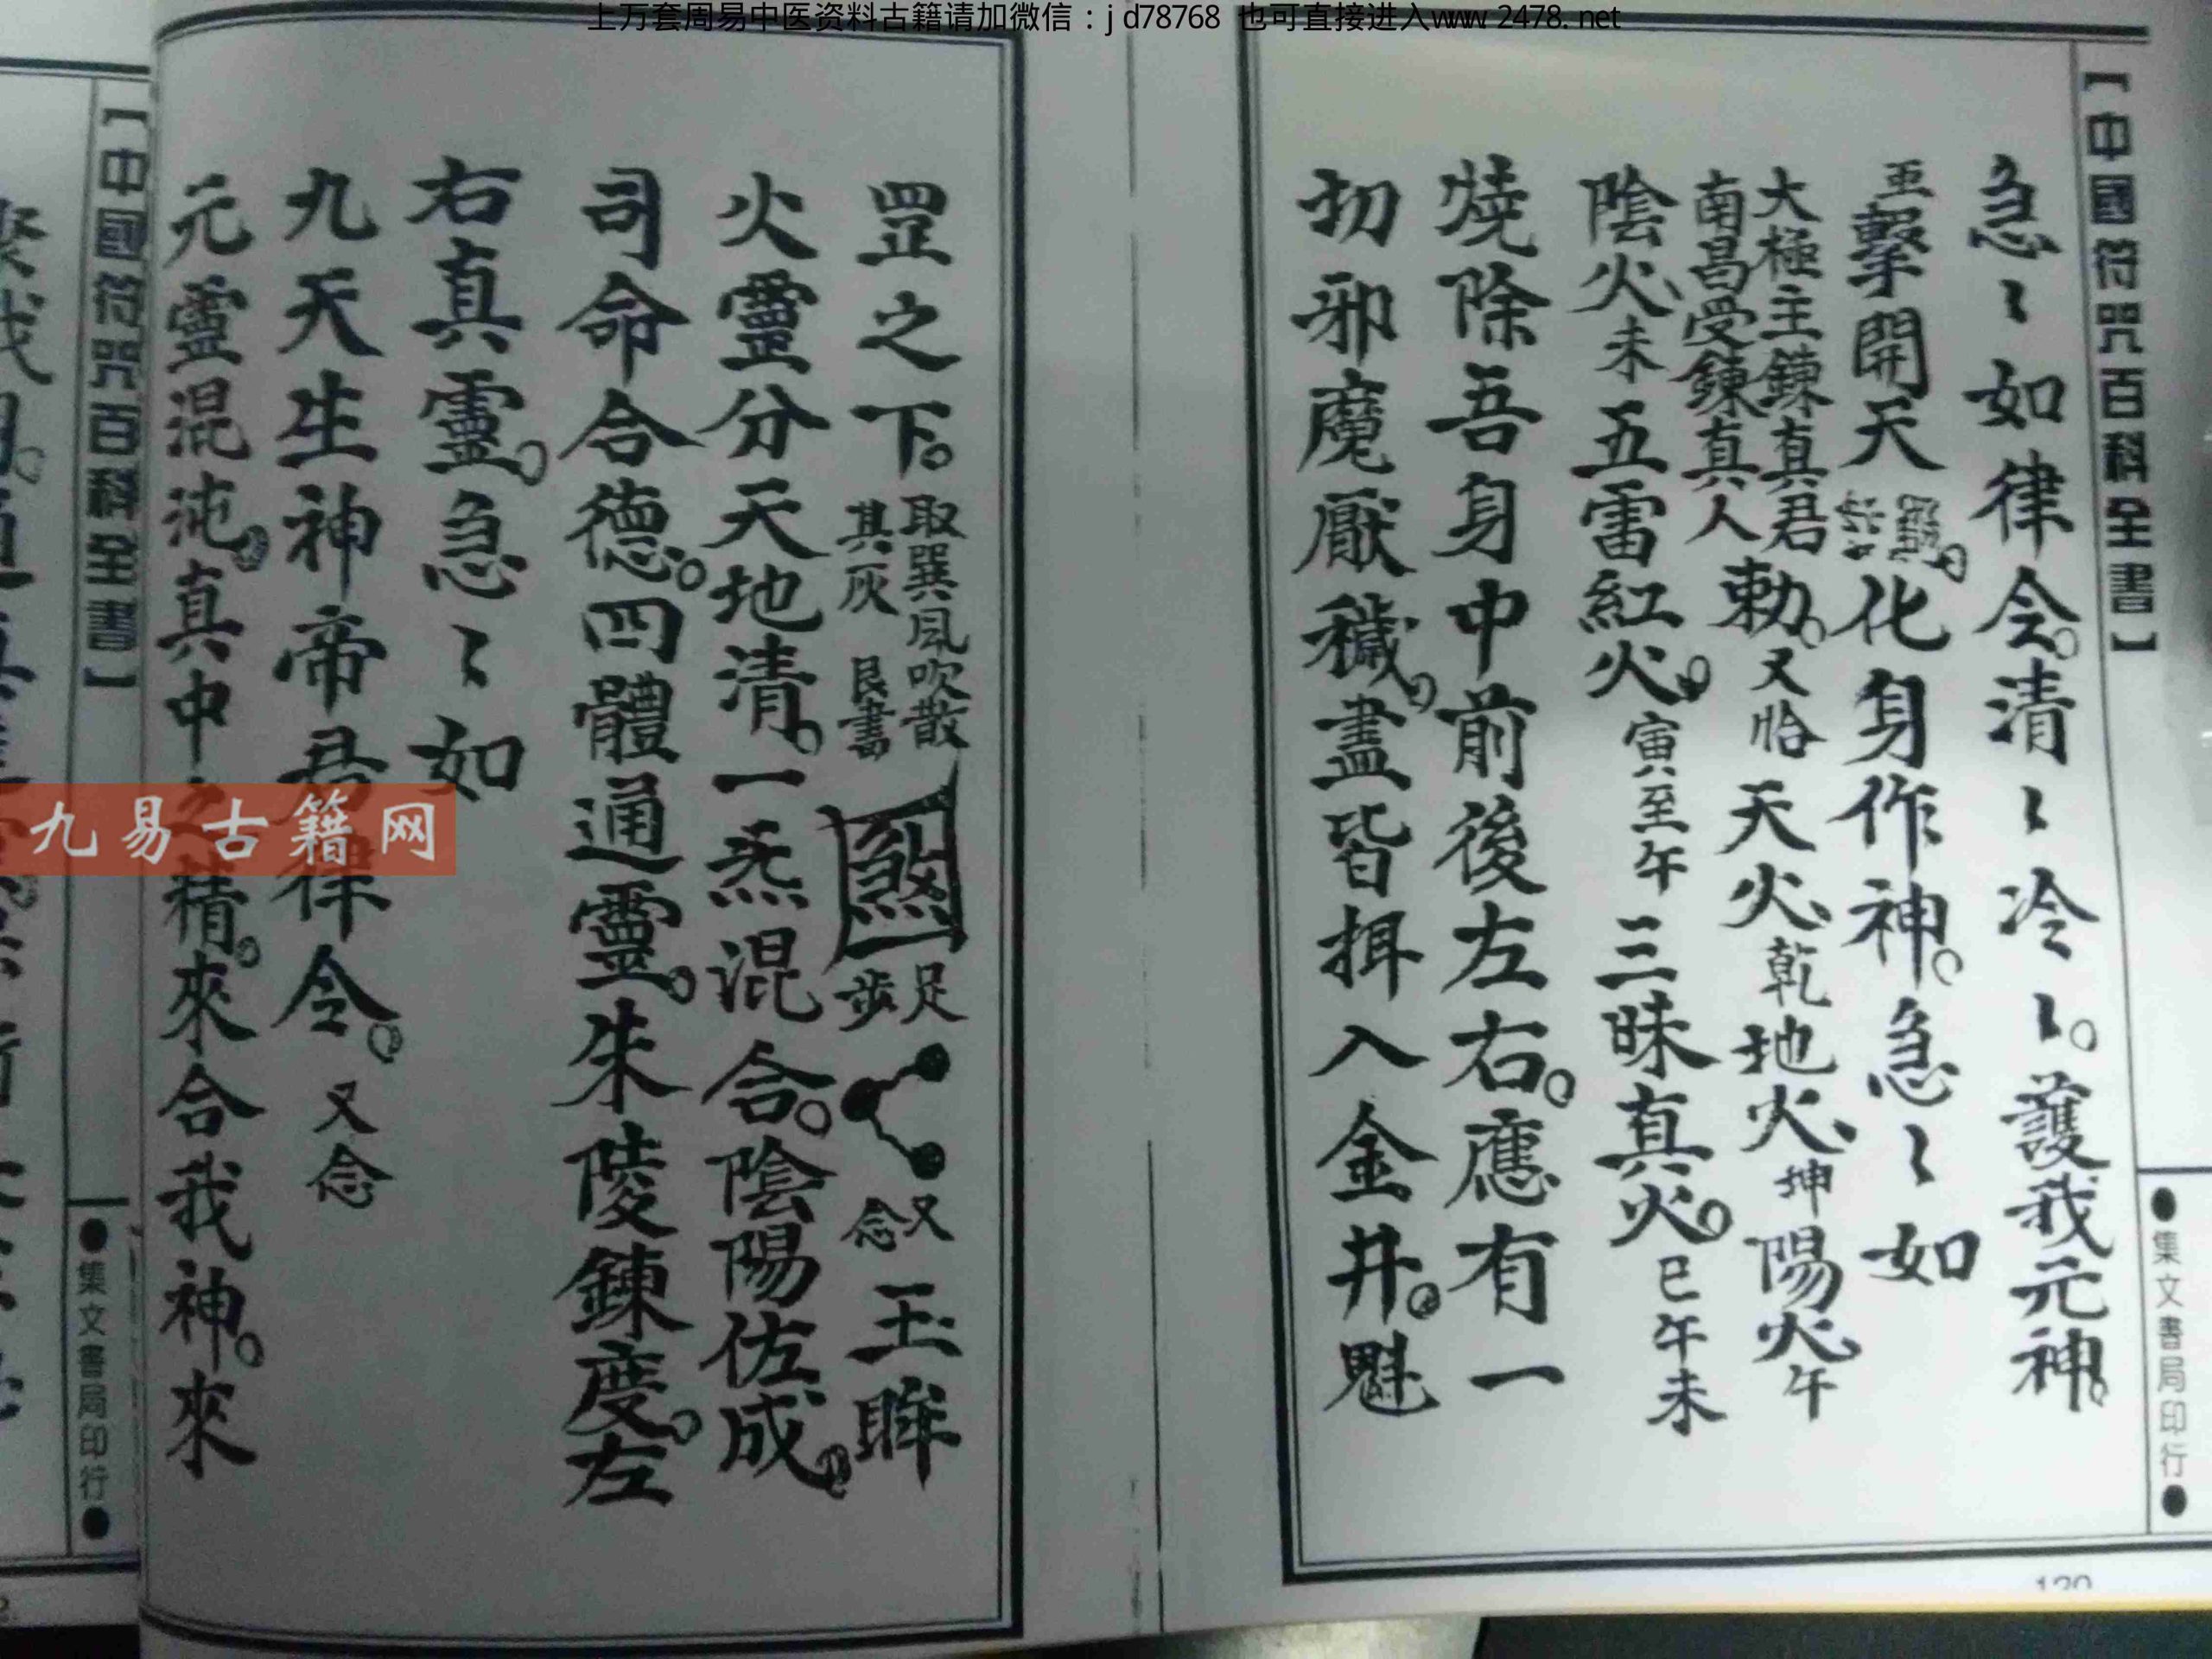 上万套周易中医资料古籍请加微信：jd78768 也可直接进入www.2478.net
【中國符咒百科全書】
●集文書局印行●
急〻如律令。清〻冷〻。護我元神。
擊開天
化身作神。急〻如
大極主鍊真君
南昌受鍊真人
勅。又
天火、乾地火、坤陽火午
陰火、未五雷紅火。寅至午三昧真火。巳午未
燒除吾身中前後左右。應有一
切邪魔厭穢。盡皆揖入金井。魁
罡之下。
取巽風吹散
其灰 艮書
煞
足步
又念
玉眸
火靈分天地清。一炁混合。陰陽佐成。
司命合德。四體通靈。朱陵鍊度。左
右真靈。急〻如
九天生神帝君律令。又念
元靈混沌。真中之精。來合我神。來
【中國符咒百科全書】
●集文書局印行●
九易古籍网